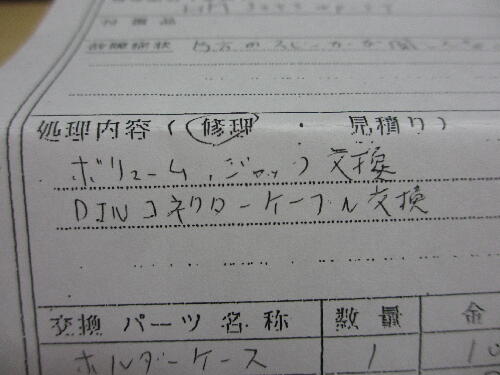 付属品
故障症状 片方のスピーカーが
処理内容(修理 ・ 見積り)
ボリューム、ジャック交換
DINコネクターケーブル交換
交換パーツ名称 数量 金
ホルダーケース 1